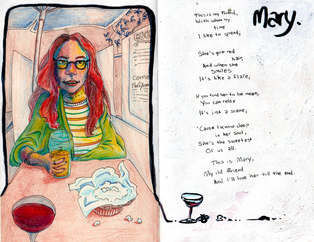 Mary.
This is my friend,
With whom my
time
I like to spend;
She's got red
hair,
And when she
smiles
It's like a flare;
If you find her to be mean,
You can relax
It's just a scene,
'Cause I know deep
in her soul,
She's the sweetest
Of us all.
This is Mary,
My old friend
And I'll love her till the end.